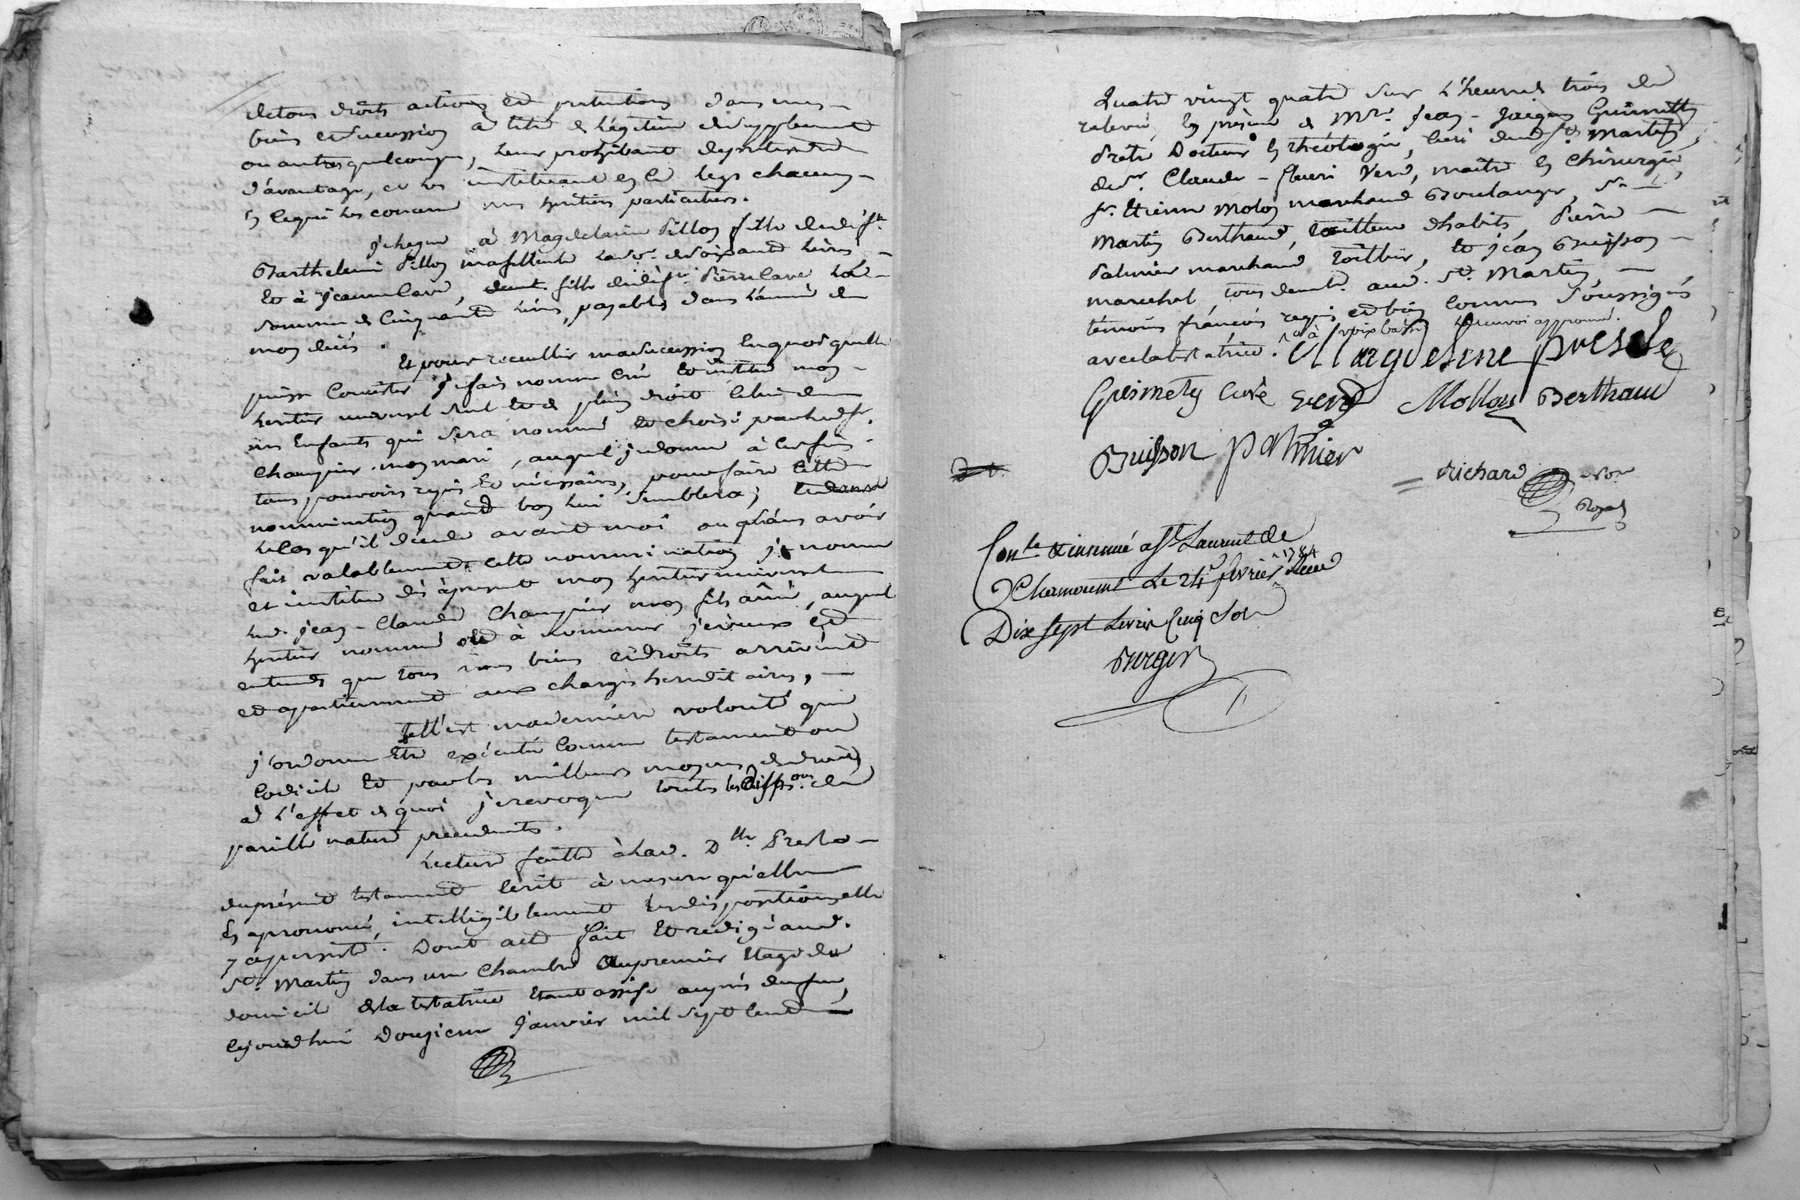 de tous droits actions et pretentions dans mes
biens et succession à titre de légitime de supplement
ou autres quelconque, leur prohibant de pretendre
d'avantage, et les instituant en ce legs chacun
en ce qui les concerne mes heritiers particuliers.
Je legue à Magdelaine Pillon fille de def.t
Barthelemi Pillon ma filleule la so.e de soixante livres
et à Jeanne fille de def.t Pierre la
somme de cinquante livres, payables dans l'année de
mon décès.
Et pour recuillir ma succession en quoi qu'elle
puisse consister je fais nomme crée et institue mon
heritier universel seul et de plein droit celui de
mes enfants qui sera nommé et choisi par led. sr.
Champier mon mari, auquel je donne à ces fins
tous pouvoirs requis et nécessaires, pour faire cette
nomination quand bon lui semblera;
le cas qu'il décede avant moi ou sans avoir
fait valablement cette nomination je nomme
et institue dès àpresent mon heritier universel
led. Jean-Claude Champier mon fils ainé, auquel
heritier nommé ou à nommer je veux et
entends que tous mes biens et droits arrivent
et apartiennent aux charges hereditaires,
tell'est ma derniere volonté que
j'ordonne être exécutée comme testament ou
codicile et par les meilleurs moyens de droit,
à l'effet de quoi je revoque toutes les disp.ons de
pareille nature precedentes.
Lecture faitte à lad. D.lle Presle
du présent testament écrit à mesure qu'elle
en a prononcé, intelligiblement les dispositions elle
y a persisté. Dont acte fait et redigé aud.
St. Martin dans une chambre au premier etage du
domicile de la testatrice etant assise auprès du feu,
cejourd'hui douzieme janvier mil sept cent
quatre vingt quatre sur l'heure de trois de
relevée, en présence de Mre. Jean-Jacques Guimetty
Prêtre Docteur en théologie, curé dud. St. Martin,
de sr. Claude-fleuri Verd, maître en chirurgie,
sr. Etienne Molon marchand Boulanger, sr.
Martin Berthaud, tailleur d'habits, Pierre
Palmier marchand toillier, et Jean Buisson
marechal, tous demt. aud. St. Martin,
témoins françois requis et bien connus soussignés
avec la testatrice. à voix basse renvoi approuvé.
Marguerine presle
Guimety curé verd Mollon Berthaud
Buisson palmier
Richard No.re
Royal
Con.le & insinué a St. Laurent de
Chamousset Le 24 fevrier 1784 Reçu
Dix sept Livres Cinq Sols
Burgin